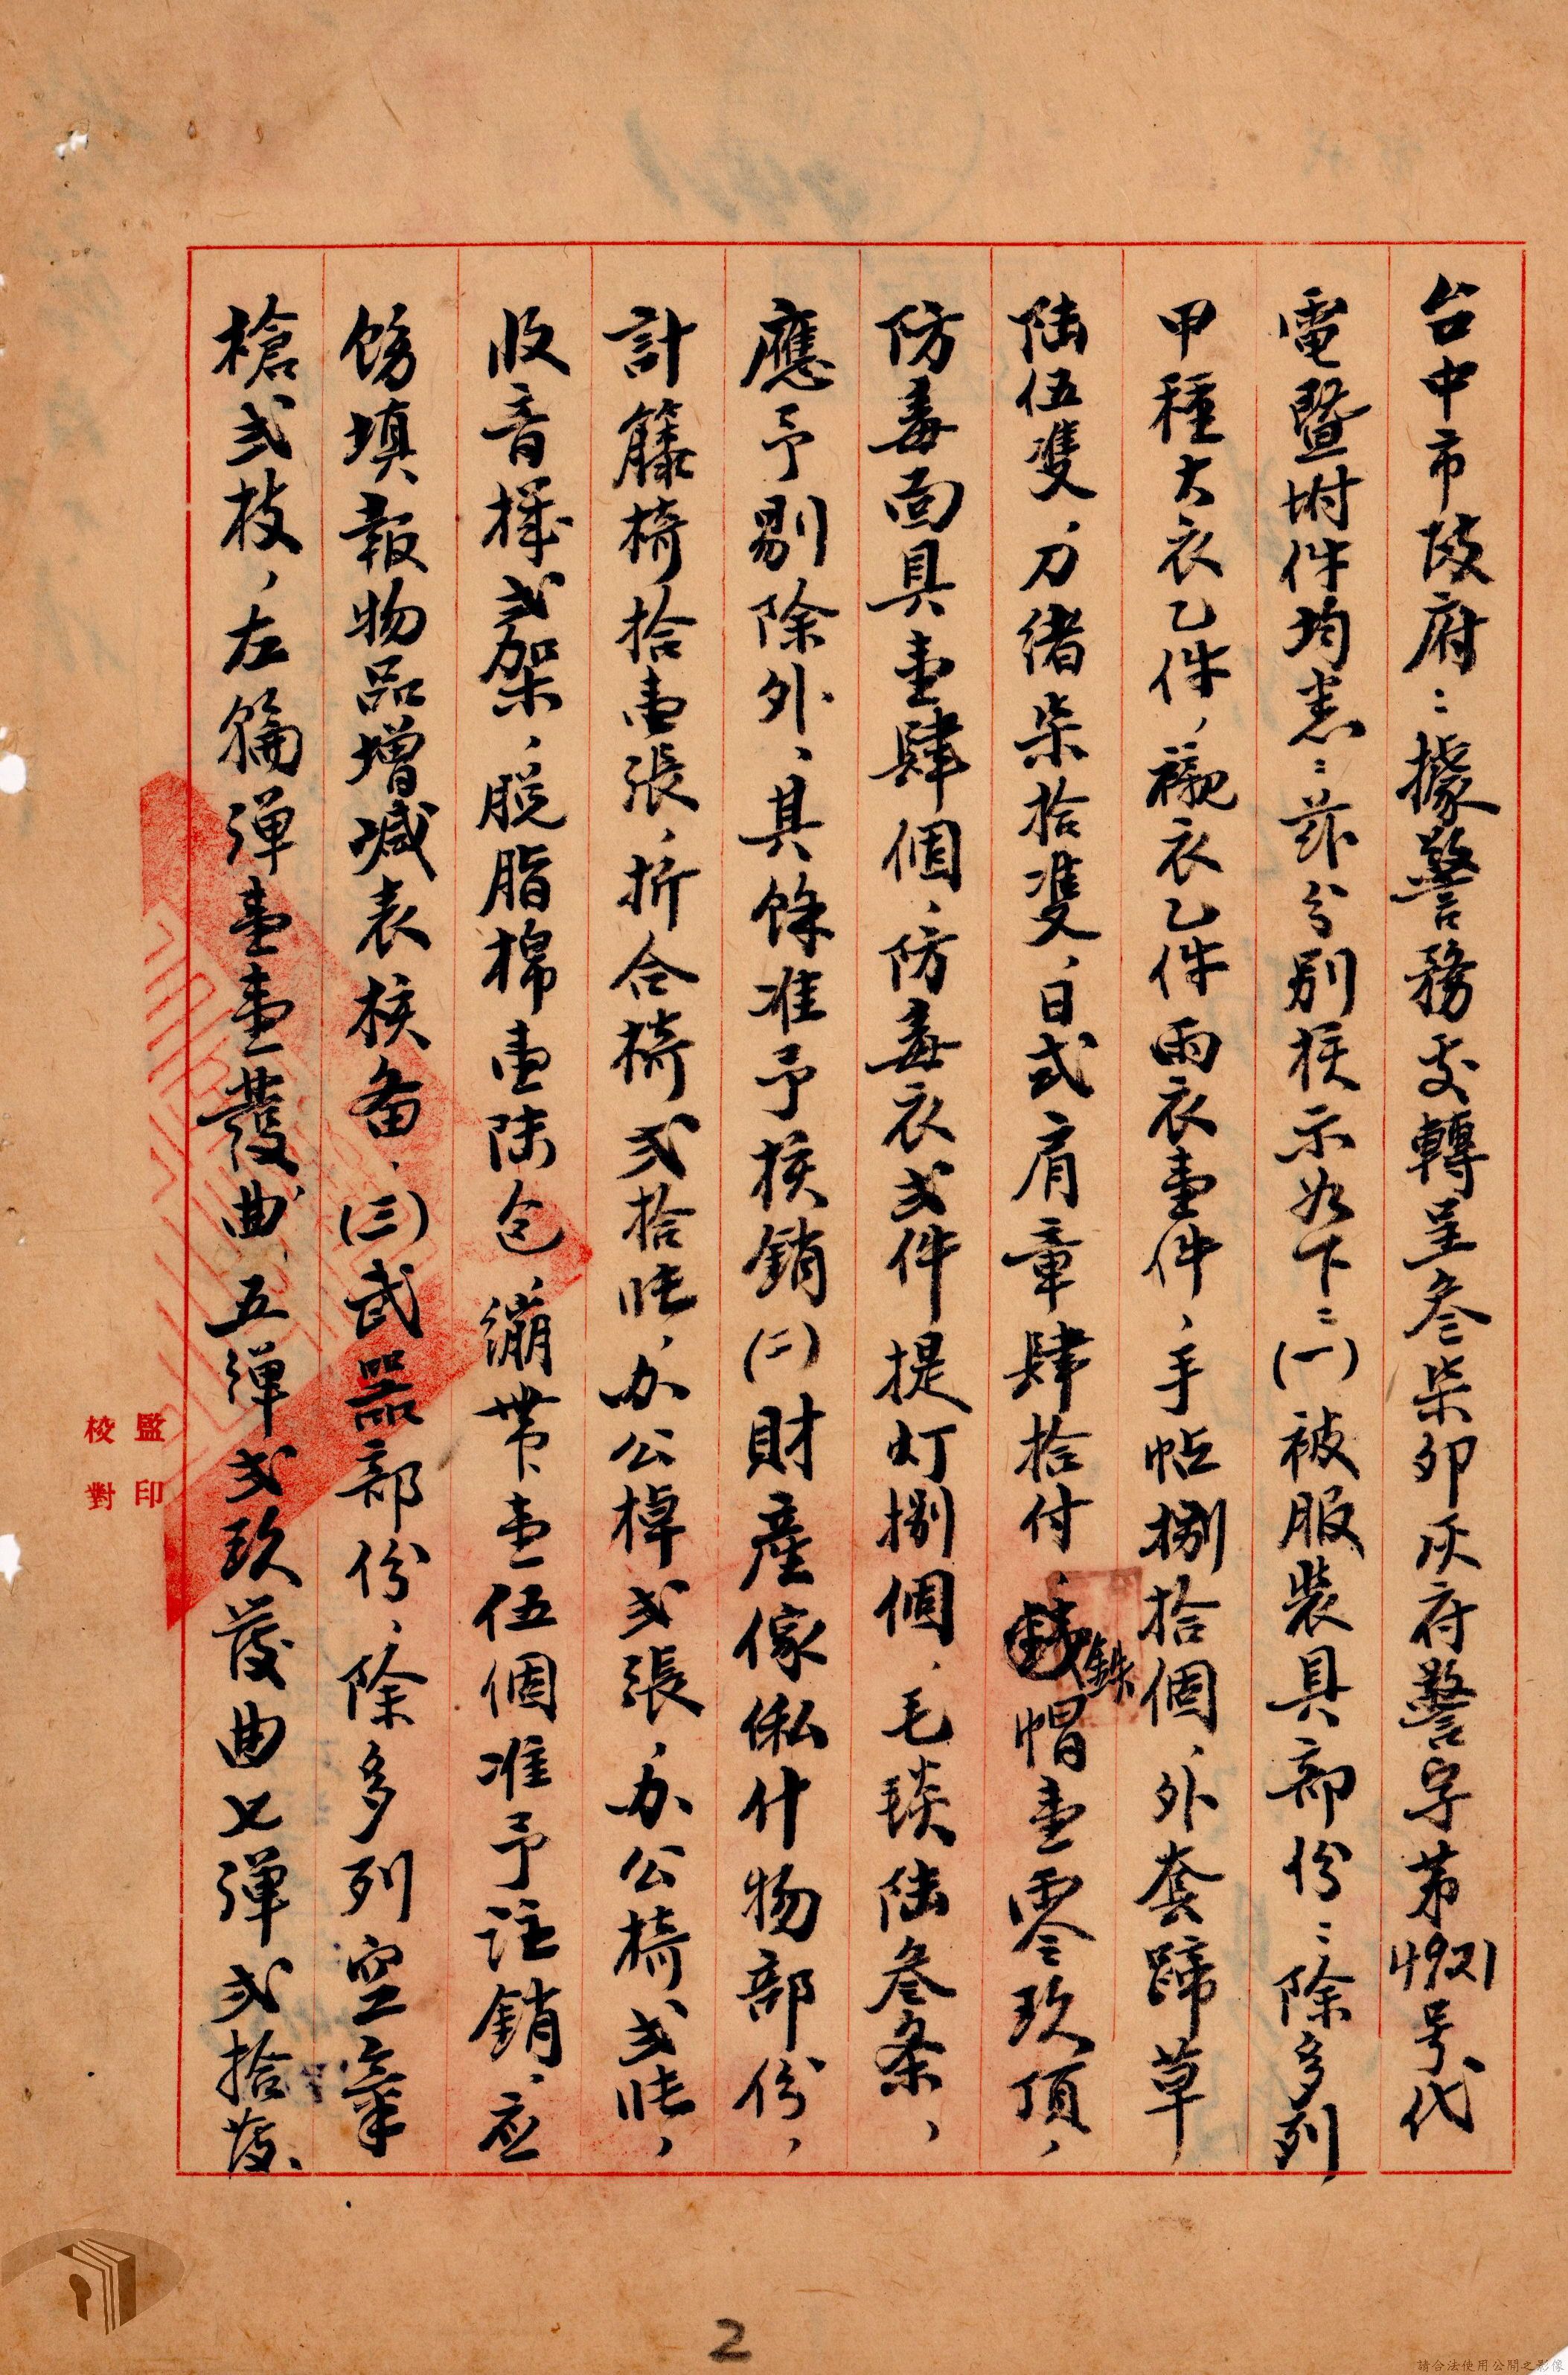 台中市政府：據警務处轉呈叁柒卯灰府警字第4921号代
電暨坿件均悉：茲分別核示如下：(一)被服裝具部份：除多列
甲種大衣乙件，襯衣乙件雨衣壹件，手帖捌拾個，外套蹄草
陆伍雙，刀緒柒拾雙，日式肩章肆拾付，鉄帽壹零玖頂，
防毒面具壹肆個，防毒衣弍件提灯捌個，毛毯陆叁条，
應予剔除外，其餘准予核銷(二)財產傢俬什物部份，
計籐椅拾壹張，折合椅弍拾張，办公棹弍張，办公椅弍張，
收音機弍架，脱脂棉壹陆包，绷带壹伍個准予註銷，应
飭填報物品增减表核备，(三)武器部份，除多列空氣
槍弍枝，左輪弹壹壹發曲，五弹弍玖發曲七弹弍拾發
監印
校對
2
請合法使用公開之影像